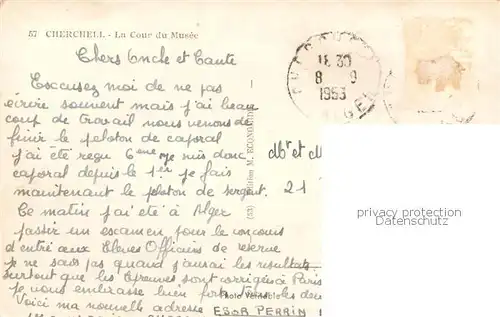 57 CHERCHELL - La Cour du Musée
Chers Oncle et Tante
Excusez moi de ne pas
écrire souvent mais j'ai beau
coup de travail nous venons de
finir le peloton de caporal
j'ai été reçu 6eme je suis donc
caporal depuis le 1er je fais
maintenant le peloton de sergent.
Ce matin j'ai été à Alger
passer un examen pour le concours
d'entré aux Eleves Officiers de reserve
je ne sais pas quand j'aurai les resultats
surtout que les épreuves sont corrigées à Paris
je vous embrasse bien fort tous les deux
Voici ma nouvelle adresse ESOR PERRIN
(13) Edition M. ECONO
Photo Véritable
18 30
8 9
1953
Mr et M
21
privacy protection
Datenschutz